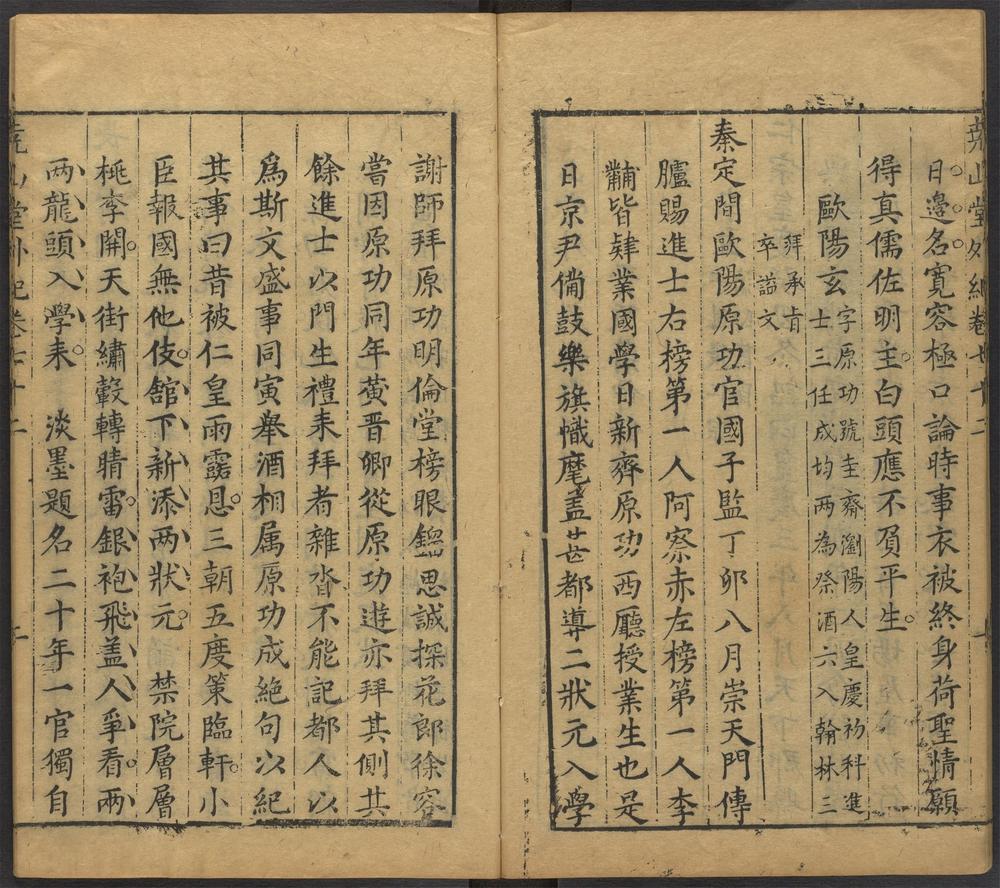 堯山堂外紀卷七十二
日邊名寬容極口論時事衣被終身荷聖情願
得真儒佐明主白頭應不負平生
歐陽玄字原功號圭齋瀏陽人皇慶初科進
士三任成均两為祭酒六入翰林三
拜承旨
卒諡文
秦定間歐陽原功官國子監丁卯八月崇天門傳
臚賜進士右榜第一人阿察赤左榜第一人李
黼皆肄業國學日新齊原功西廳授業生也是
日京尹備鼓樂旗幟麾盖甚都導二狀元入學
謝師拜原功明倫堂榜眼鎦思誠探花郎徐容
嘗因原功同年黄晋卿從原功遊亦拜其側其
餘進士以門生禮来拜者雜沓不能記都人以
爲斯文盛事同寅舉酒相属原功成絶句以紀
其事曰昔被仁皇雨露恩三朝五度策臨軒小
臣報國無他伎舘下新添两狀元　禁院層層
桃李開天街繡轂轉晴雷銀袍飛盖人爭看两
两龍頭入學来　淡墨題名二十年一官獨自
堯山堂外紀卷七十二